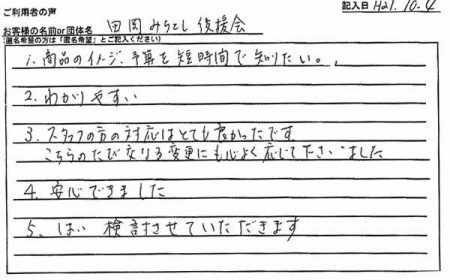 ご利用者の声
記入日 H21.10.4
お客様の名前or団体名 田岡みちとし後援会
(匿名希望の方は「匿名希望」とご記入ください)
1. 商品のイメージ、予算を短時間で知りたい。
2. わかりやすい
3. スタッフの方の対応はとても良かったです
こちらのたび重なる変更にも心よく応じて下さいました
4. 安心できました
5. はい 検討させていただきます